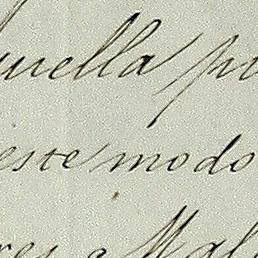 uella pu
este modo
res e Mal